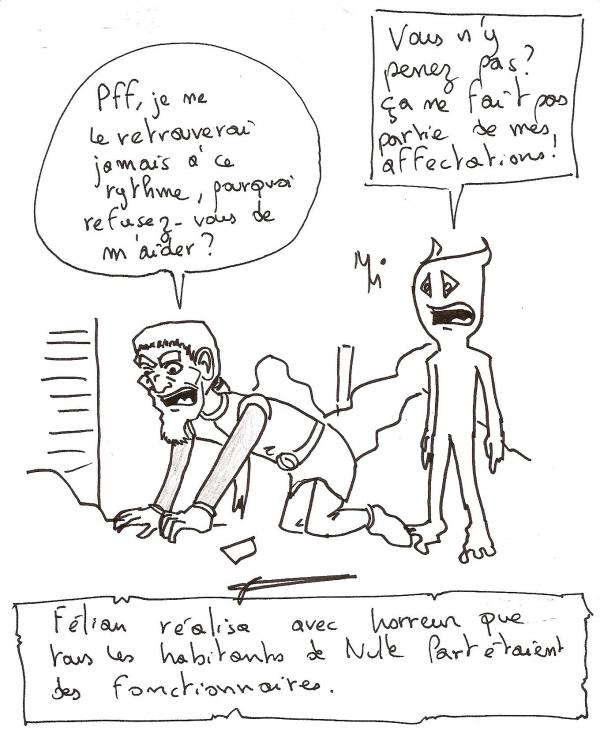 Pff, je ne
le retrouverai
jamais à ce
rythme, pourquoi
refusez-vous de
m'aider?
Vous n'y
pensez pas?
ça ne fait pas
partie de mes
affectations!
Félian réalisa avec horreur que
tous les habitants de Nulle Part étaient
des fonctionnaires.